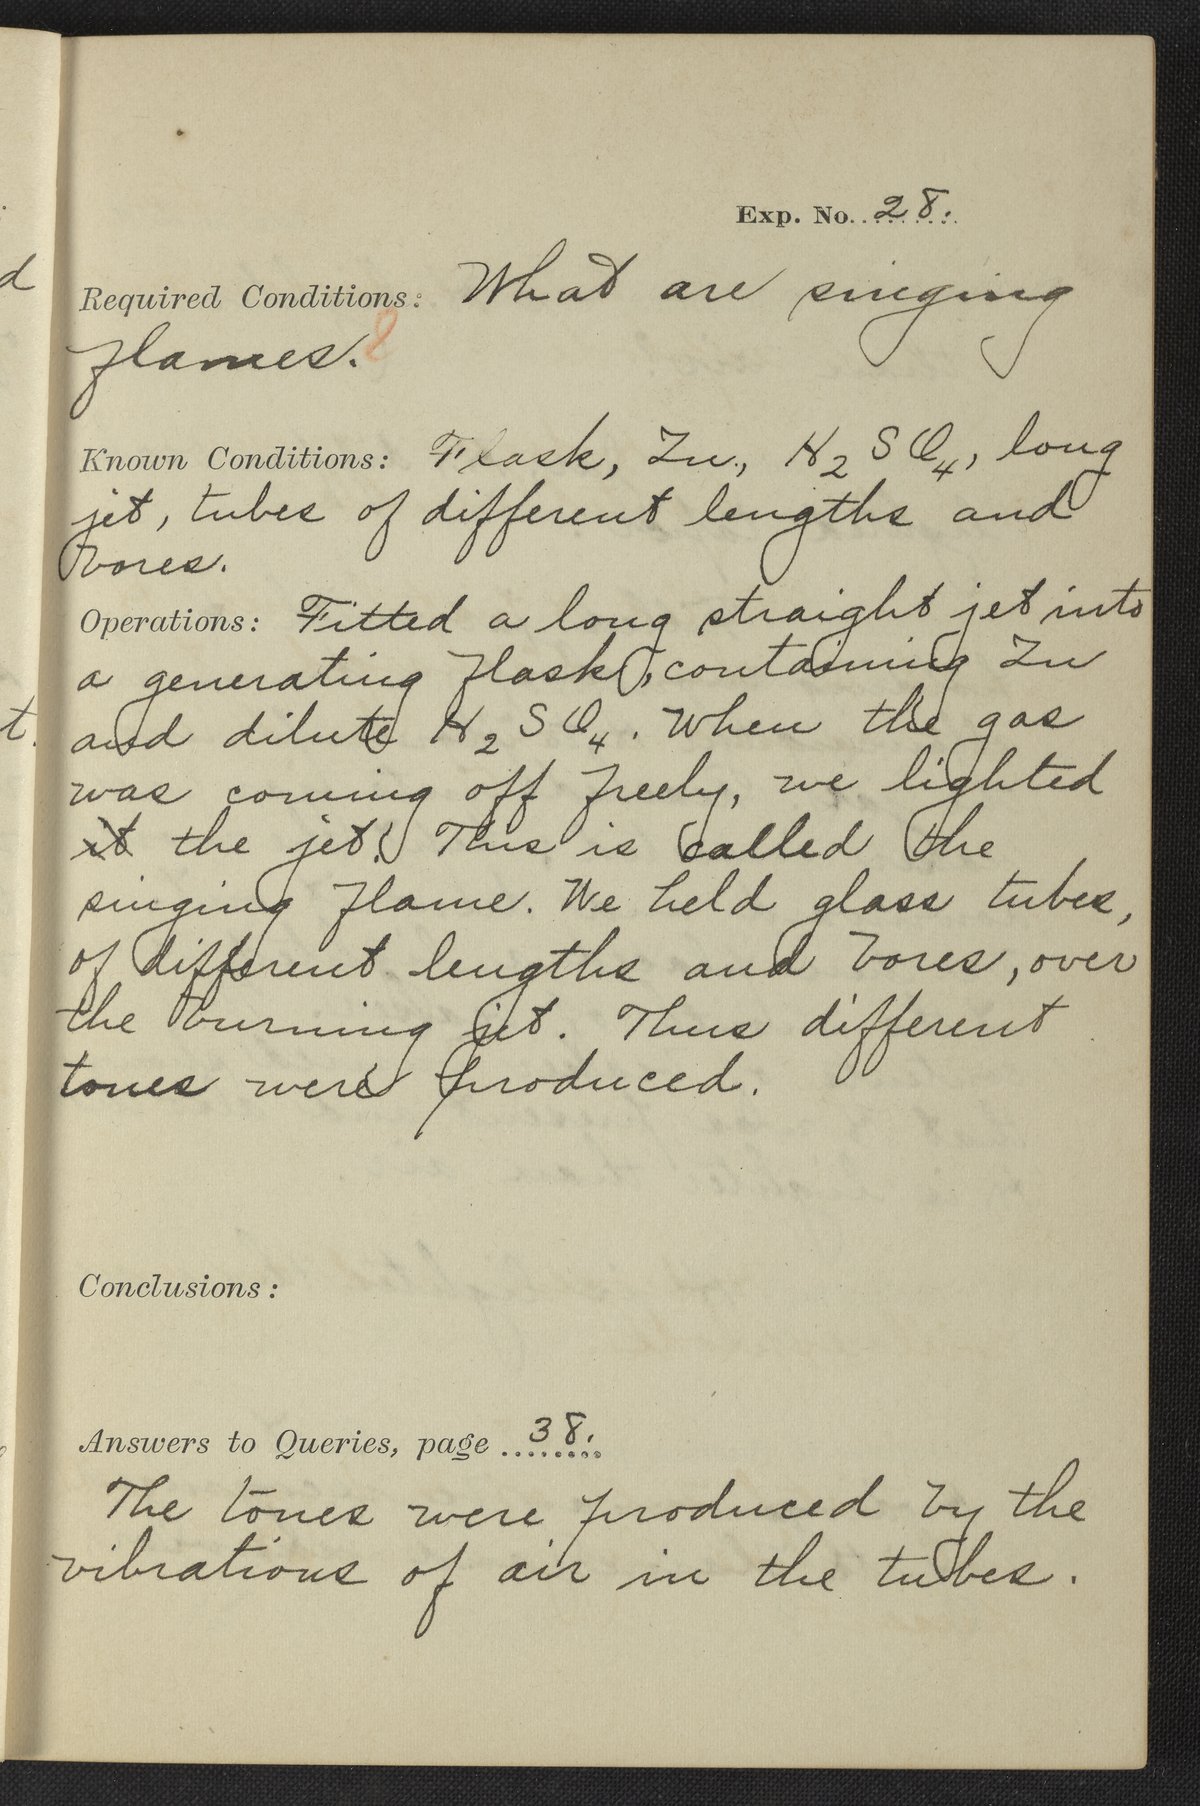 Exp. No. 28.
Required Conditions: What are singing
flames.?
Known Conditions: Flask, Zn., H₂SO₄, long
jet, tubes of different lengths and
bores.
Operations: Fitted a long straight jet into
a generating flask, containing Zn
and dilute H₂SO₄. When the gas
was coming off freely, we lighted
it the jet. This is called the
singing flame. We held glass tubes,
of different lengths and bores, over
the burning jet. Thus different
tones were produced.
Conclusions:
Answers to Queries, page 38.
The tones were produced by the
vibrations of air in the tubes.